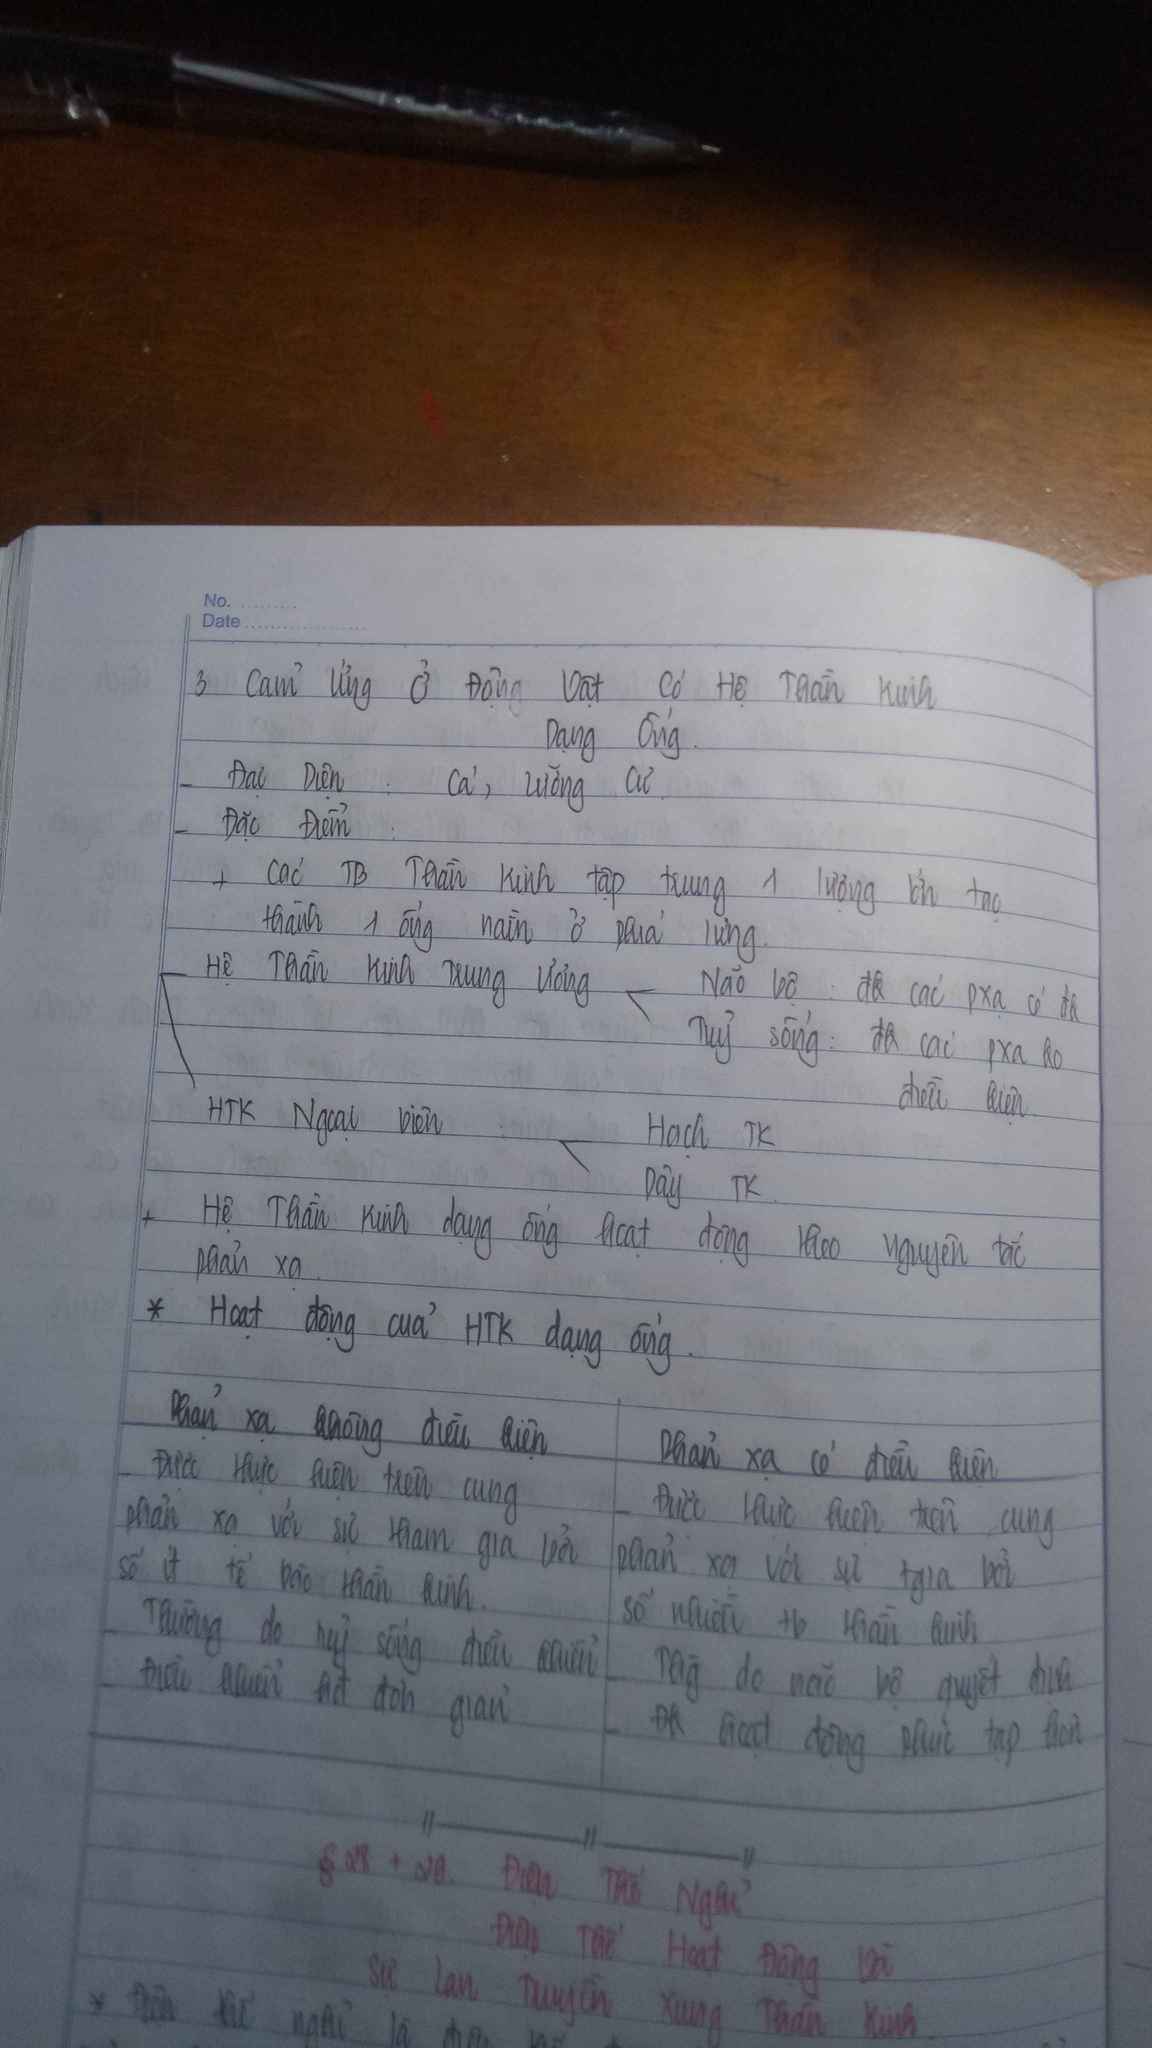 No. ..........
Date ....................
3 Cảm Ứng Ở Động Vật Có Hệ Thần Kinh
Dạng Ống.
- Đại Diện : Cá, Lưỡng Cư.
- Đặc Điểm :
+ Các TB Thần Kinh tập trung 1 lượng lớn tạo
thành 1 ống nằm ở phía lưng.
- Hệ Thần Kinh Trung Ương - Não bộ : đk các pxạ có đk
Tuỷ sống : đk các pxạ ko
điều kiện
HTK Ngoại biên - Hạch TK
Dây TK.
+ Hệ Thần Kinh dạng ống hoạt động theo nguyên tắc
phản xạ.
* Hoạt động của HTK dạng ống.
Phản xạ không điều kiện
- Được thực hiện trên cung
phản xạ với sự tham gia bởi
số ít tế bào thần kinh.
- Thường do tuỷ sống điều khiển
- Điều khiển hđ đơn giản
Phản xạ có điều kiện
- Được thực hiện trên cung
phản xạ với sự tgia bởi
số nhiều tb thần kinh
- Thg do não bộ quyết định
- Đk hoạt động phức tạp hơn
§ 28 + 29. Điện Thế Nghỉ
Điện Thế Hoạt Động Và
Sự Lan Truyền Xung Thần Kinh.
* Điện thế nghỉ là điện thế